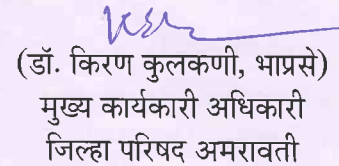 (डॉ. किरण कुलकणी, भाप्रसे)
मुख्य कार्यकारी अधिकारी
जिल्हा परिषद अमरावती